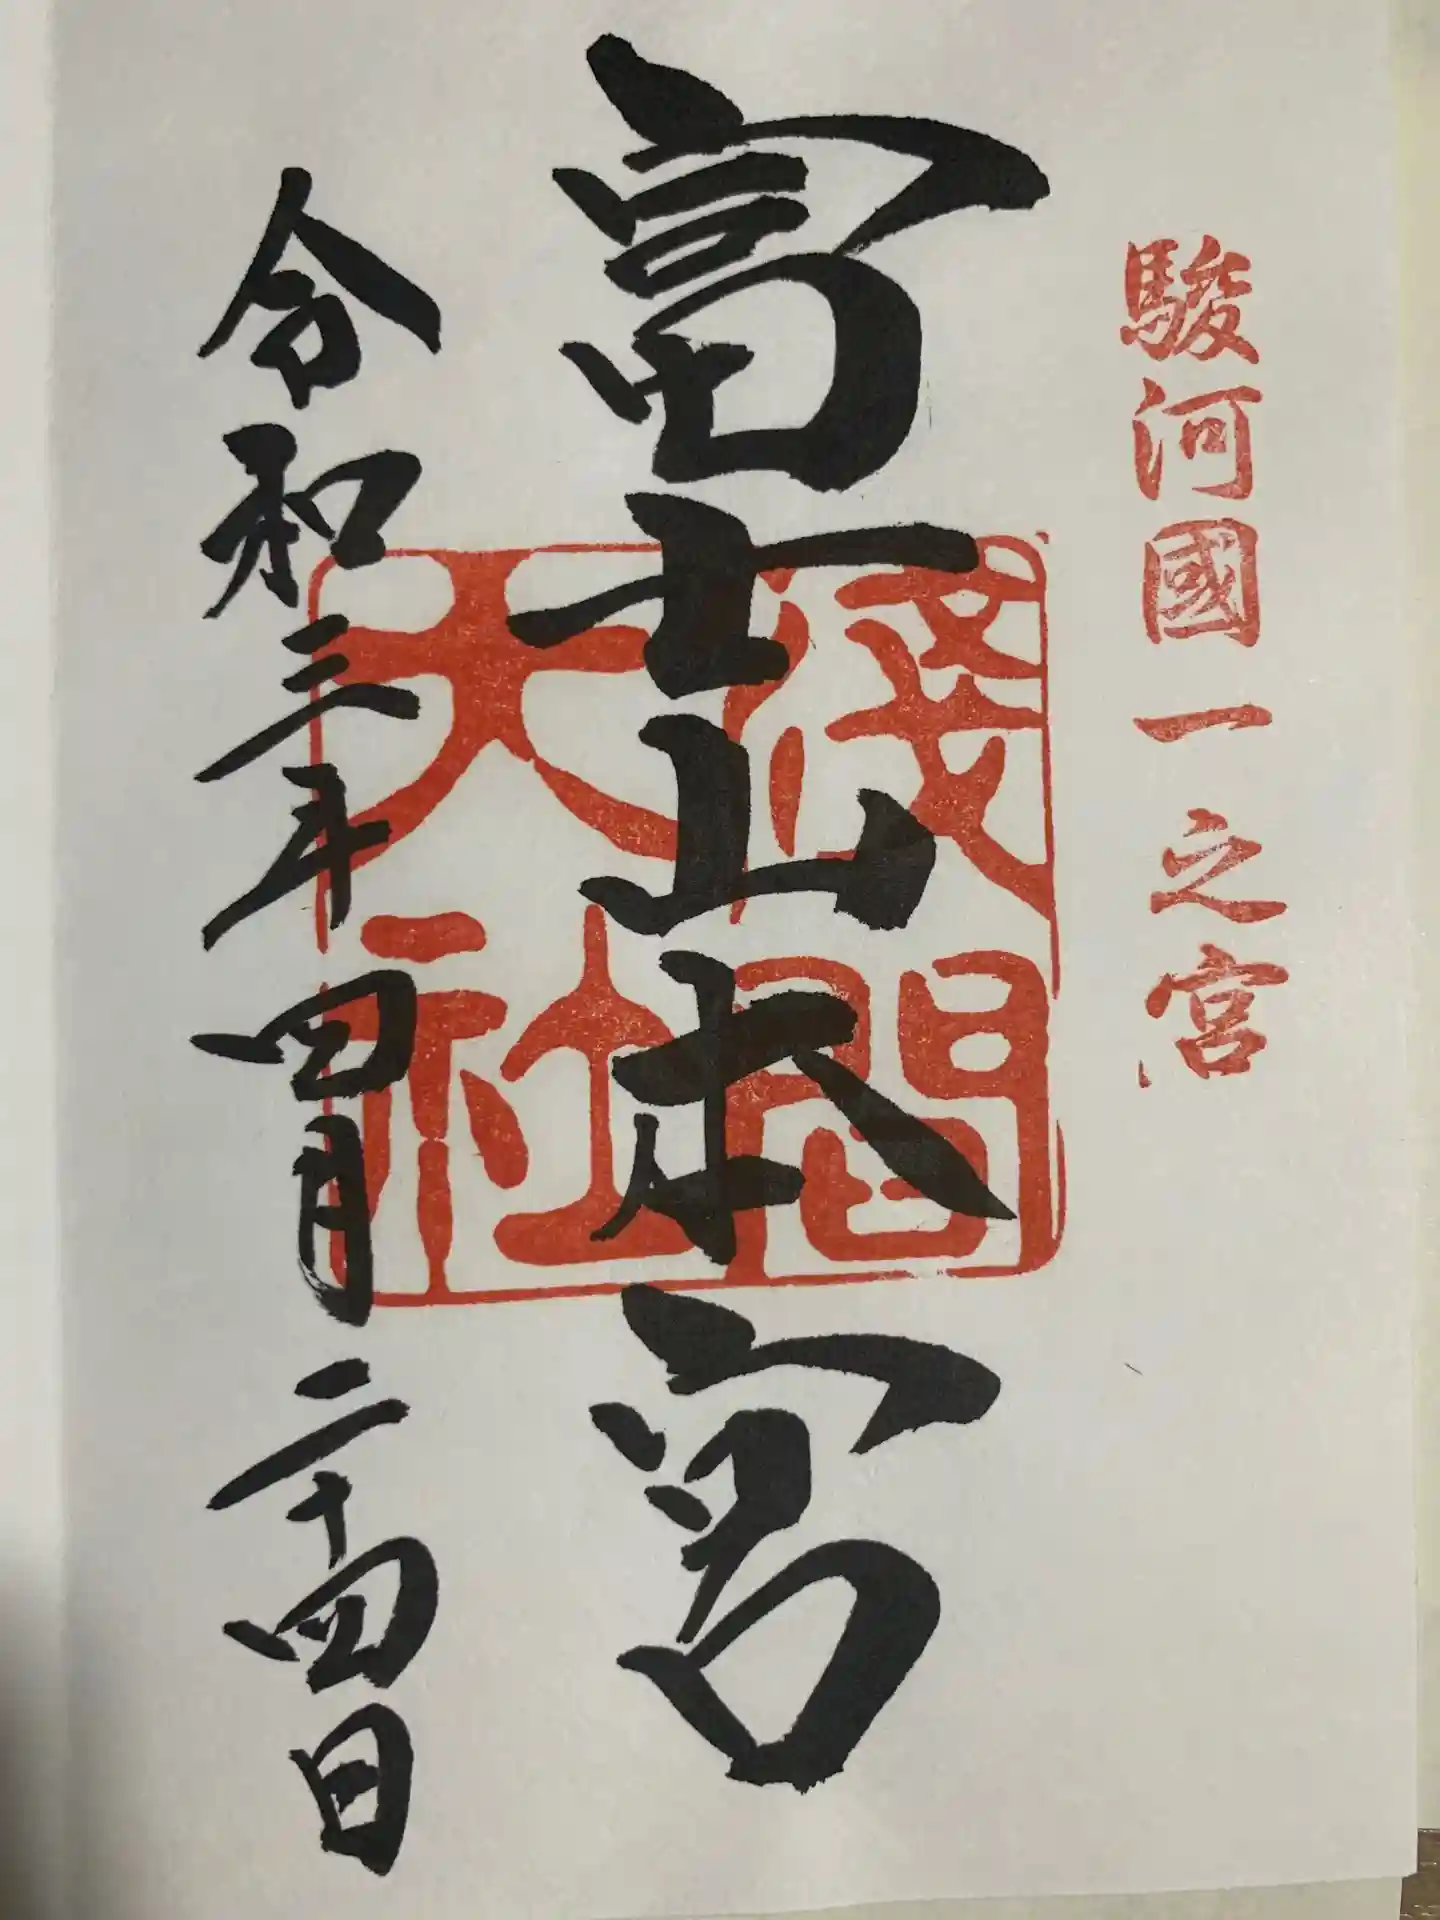 駿河國一之宮
富士山本宮
淺間大社
令和三年四月二十四日